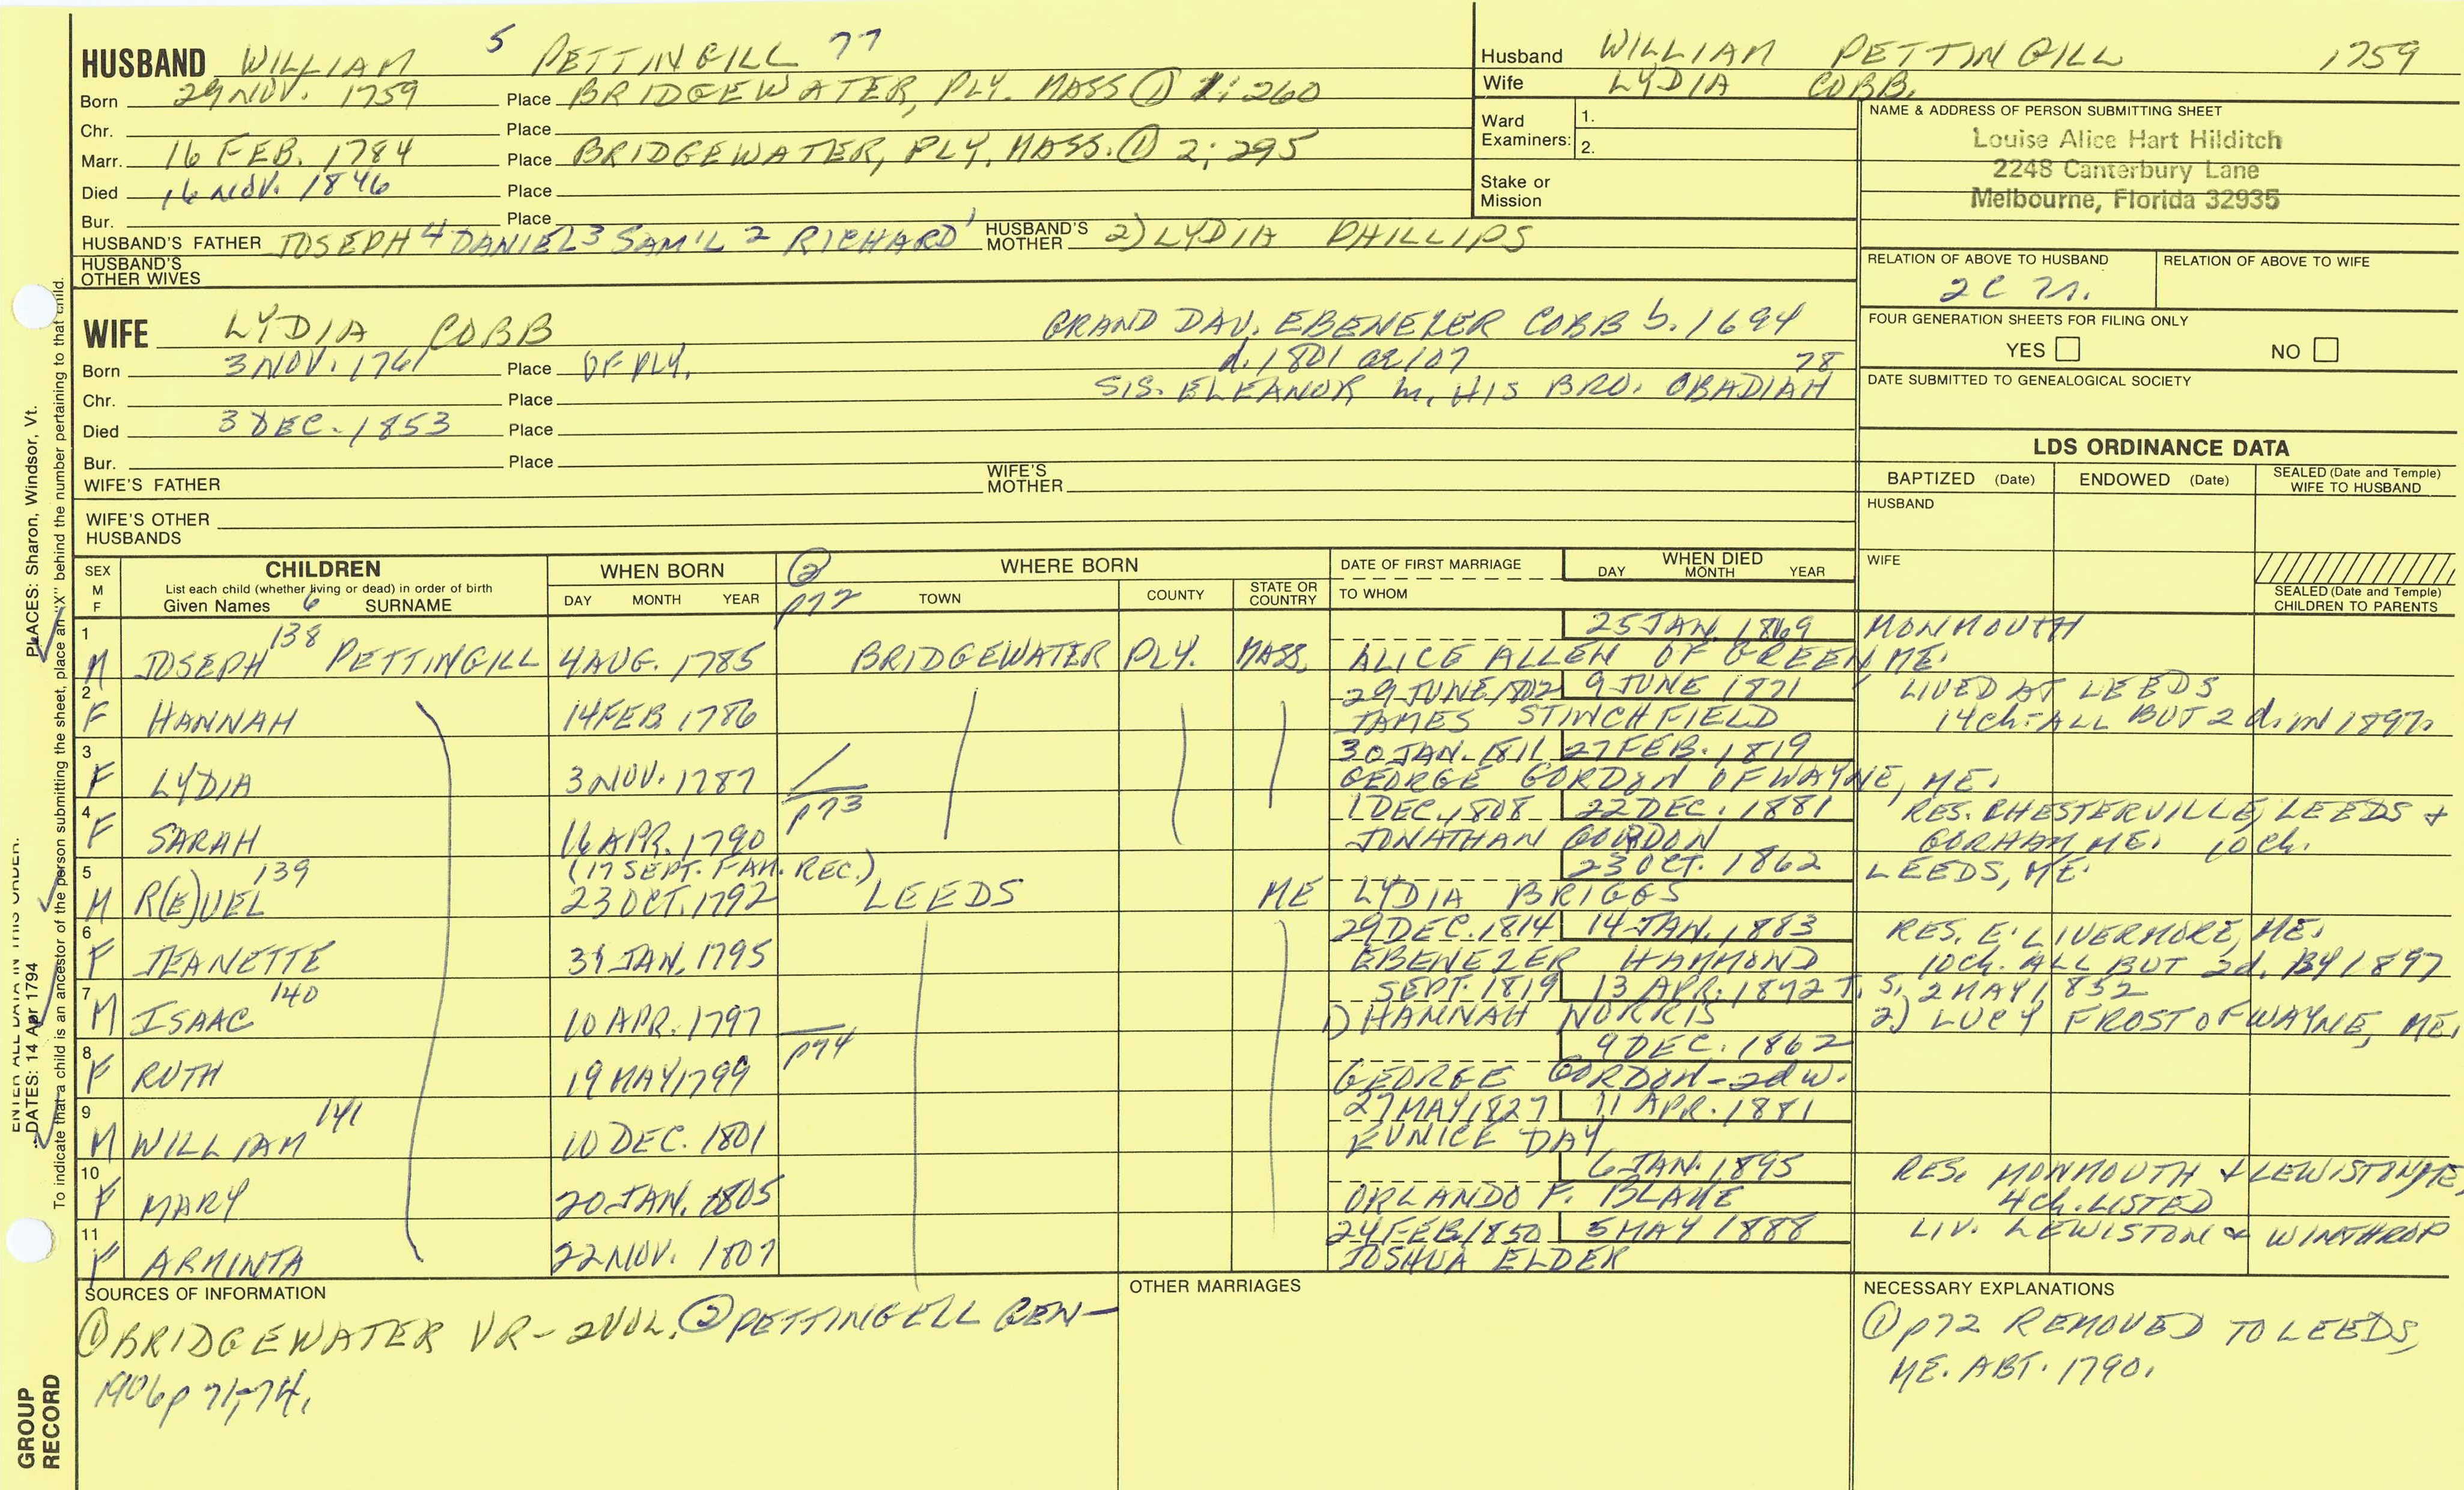 HUSBAND WILLIAM 5 PETTINGILL 77
Born 29 NOV. 1759 Place BRIDGEWATER, PLY. MASS ① 1: 260
Chr. Place
Marr. 16 FEB. 1784 Place BRIDGEWATER, PLY, MASS. ① 2: 295
Died 16 NOV. 1846 Place
Bur. Place
HUSBAND'S FATHER JOSEPH 4 DANIEL 3 SAM'L 2 RICHARD 1 HUSBAND'S MOTHER 2) LYDIA PHILLIPS
HUSBAND'S OTHER WIVES
Husband WILLIAM PETTINGILL 1759
Wife LYDIA COBB.
Ward Examiners: 1.
2.
Stake or Mission
NAME & ADDRESS OF PERSON SUBMITTING SHEET
Louise Alice Hart Hilditch
2248 Canterbury Lane
Melbourne, Florida 32935
RELATION OF ABOVE TO HUSBAND RELATION OF ABOVE TO WIFE
2C
FOUR GENERATION SHEETS FOR FILING ONLY
YES NO
DATE SUBMITTED TO GENEALOGICAL SOCIETY
WIFE LYDIA COBB GRAND DAU. EBENEZER COBB b. 1694
Born 3 NOV. 1761 Place OF PLY. d. 1801 ae 107 78
Chr. Place SIS. ELEANOR m. HIS BRO. OBADIAH
Died 3 DEC. 1853 Place
Bur. Place
WIFE'S FATHER WIFE'S MOTHER
WIFE'S OTHER HUSBANDS
LDS ORDINANCE DATA
BAPTIZED (Date) ENDOWED (Date) SEALED (Date and Temple) WIFE TO HUSBAND
HUSBAND
WIFE
SEALED (Date and Temple) CHILDREN TO PARENTS
SEX M F CHILDREN List each child (whether living or dead) in order of birth Given Names 6 SURNAME
WHEN BORN DAY MONTH YEAR
② p72 WHERE BORN TOWN COUNTY STATE OR COUNTRY
DATE OF FIRST MARRIAGE TO WHOM
WHEN DIED DAY MONTH YEAR
1 25 JAN. 1869 MONMOUTH
M JOSEPH 138 PETTINGILL 4 AUG. 1785 BRIDGEWATER PLY. MASS. ALICE ALLEN OF GREEN ME.
2 29 JUNE 1802 9 JUNE 1871 LIVED AT LEEDS
F HANNAH 14 FEB 1786 JAMES STINCHFIELD 14 ch. ALL BUT 2 d. IN 1897.
3 30 JAN. 1811 27 FEB. 1819
F LYDIA 3 NOV. 1787 GEORGE GORDON OF WAYNE, ME.
4 p73 1 DEC. 1808 22 DEC. 1881 RES. CHESTERVILLE, LEEDS +
F SARAH 16 APR. 1790 JONATHAN GORDON GORHAM, ME. 10 ch.
5 (17 SEPT. FAM. REC.) 23 OCT. 1862 LEEDS, ME.
M R(E)UEL 139 23 OCT. 1792 LEEDS ME LYDIA BRIGGS
6 29 DEC. 1814 14 JAN. 1883 RES. E. LIVERMORE, ME.
F JEANETTE 31 JAN. 1795 EBENEZER HAMMOND 10 ch. ALL BUT 2 d. BY 1897
7 SEPT. 1819 13 APR. 1872 T. S. 2 MAY 1852
M ISAAC 140 10 APR. 1797 1) HANNAH NORRIS 2) LUCY FROST OF WAYNE, ME.
8 p74 9 DEC. 1862
F RUTH 19 MAY 1799 GEORGE GORDON - 2d w.
9 27 MAY 1827 11 APR. 1881
M WILLIAM 141 10 DEC. 1801 EUNICE DAY
10 6 JAN. 1895 RES. MONMOUTH + LEWISTON, ME,
F MARY 20 JAN. 1805 ORLANDO F. BLAKE 4 ch. LISTED
11 24 FEB. 1850 5 MAY 1888 LIV. LEWISTON & WINTHROP
F ARMINTA 22 NOV. 1807 JOSHUA ELDER
SOURCES OF INFORMATION
① BRIDGEWATER VR - 2 VOL. ② PETTINGELL GEN -
1906 p 71-74.
OTHER MARRIAGES
NECESSARY EXPLANATIONS
① p72 REMOVED TO LEEDS,
ME. ABT. 1790.
ENTER ALL DATA IN THIS ORDER:
DATES: 14 Apr 1794 PLACES: Sharon, Windsor, Vt.
To indicate that a child is an ancestor of the person submitting the sheet, place an "X" behind the number pertaining to that child.
GROUP RECORD